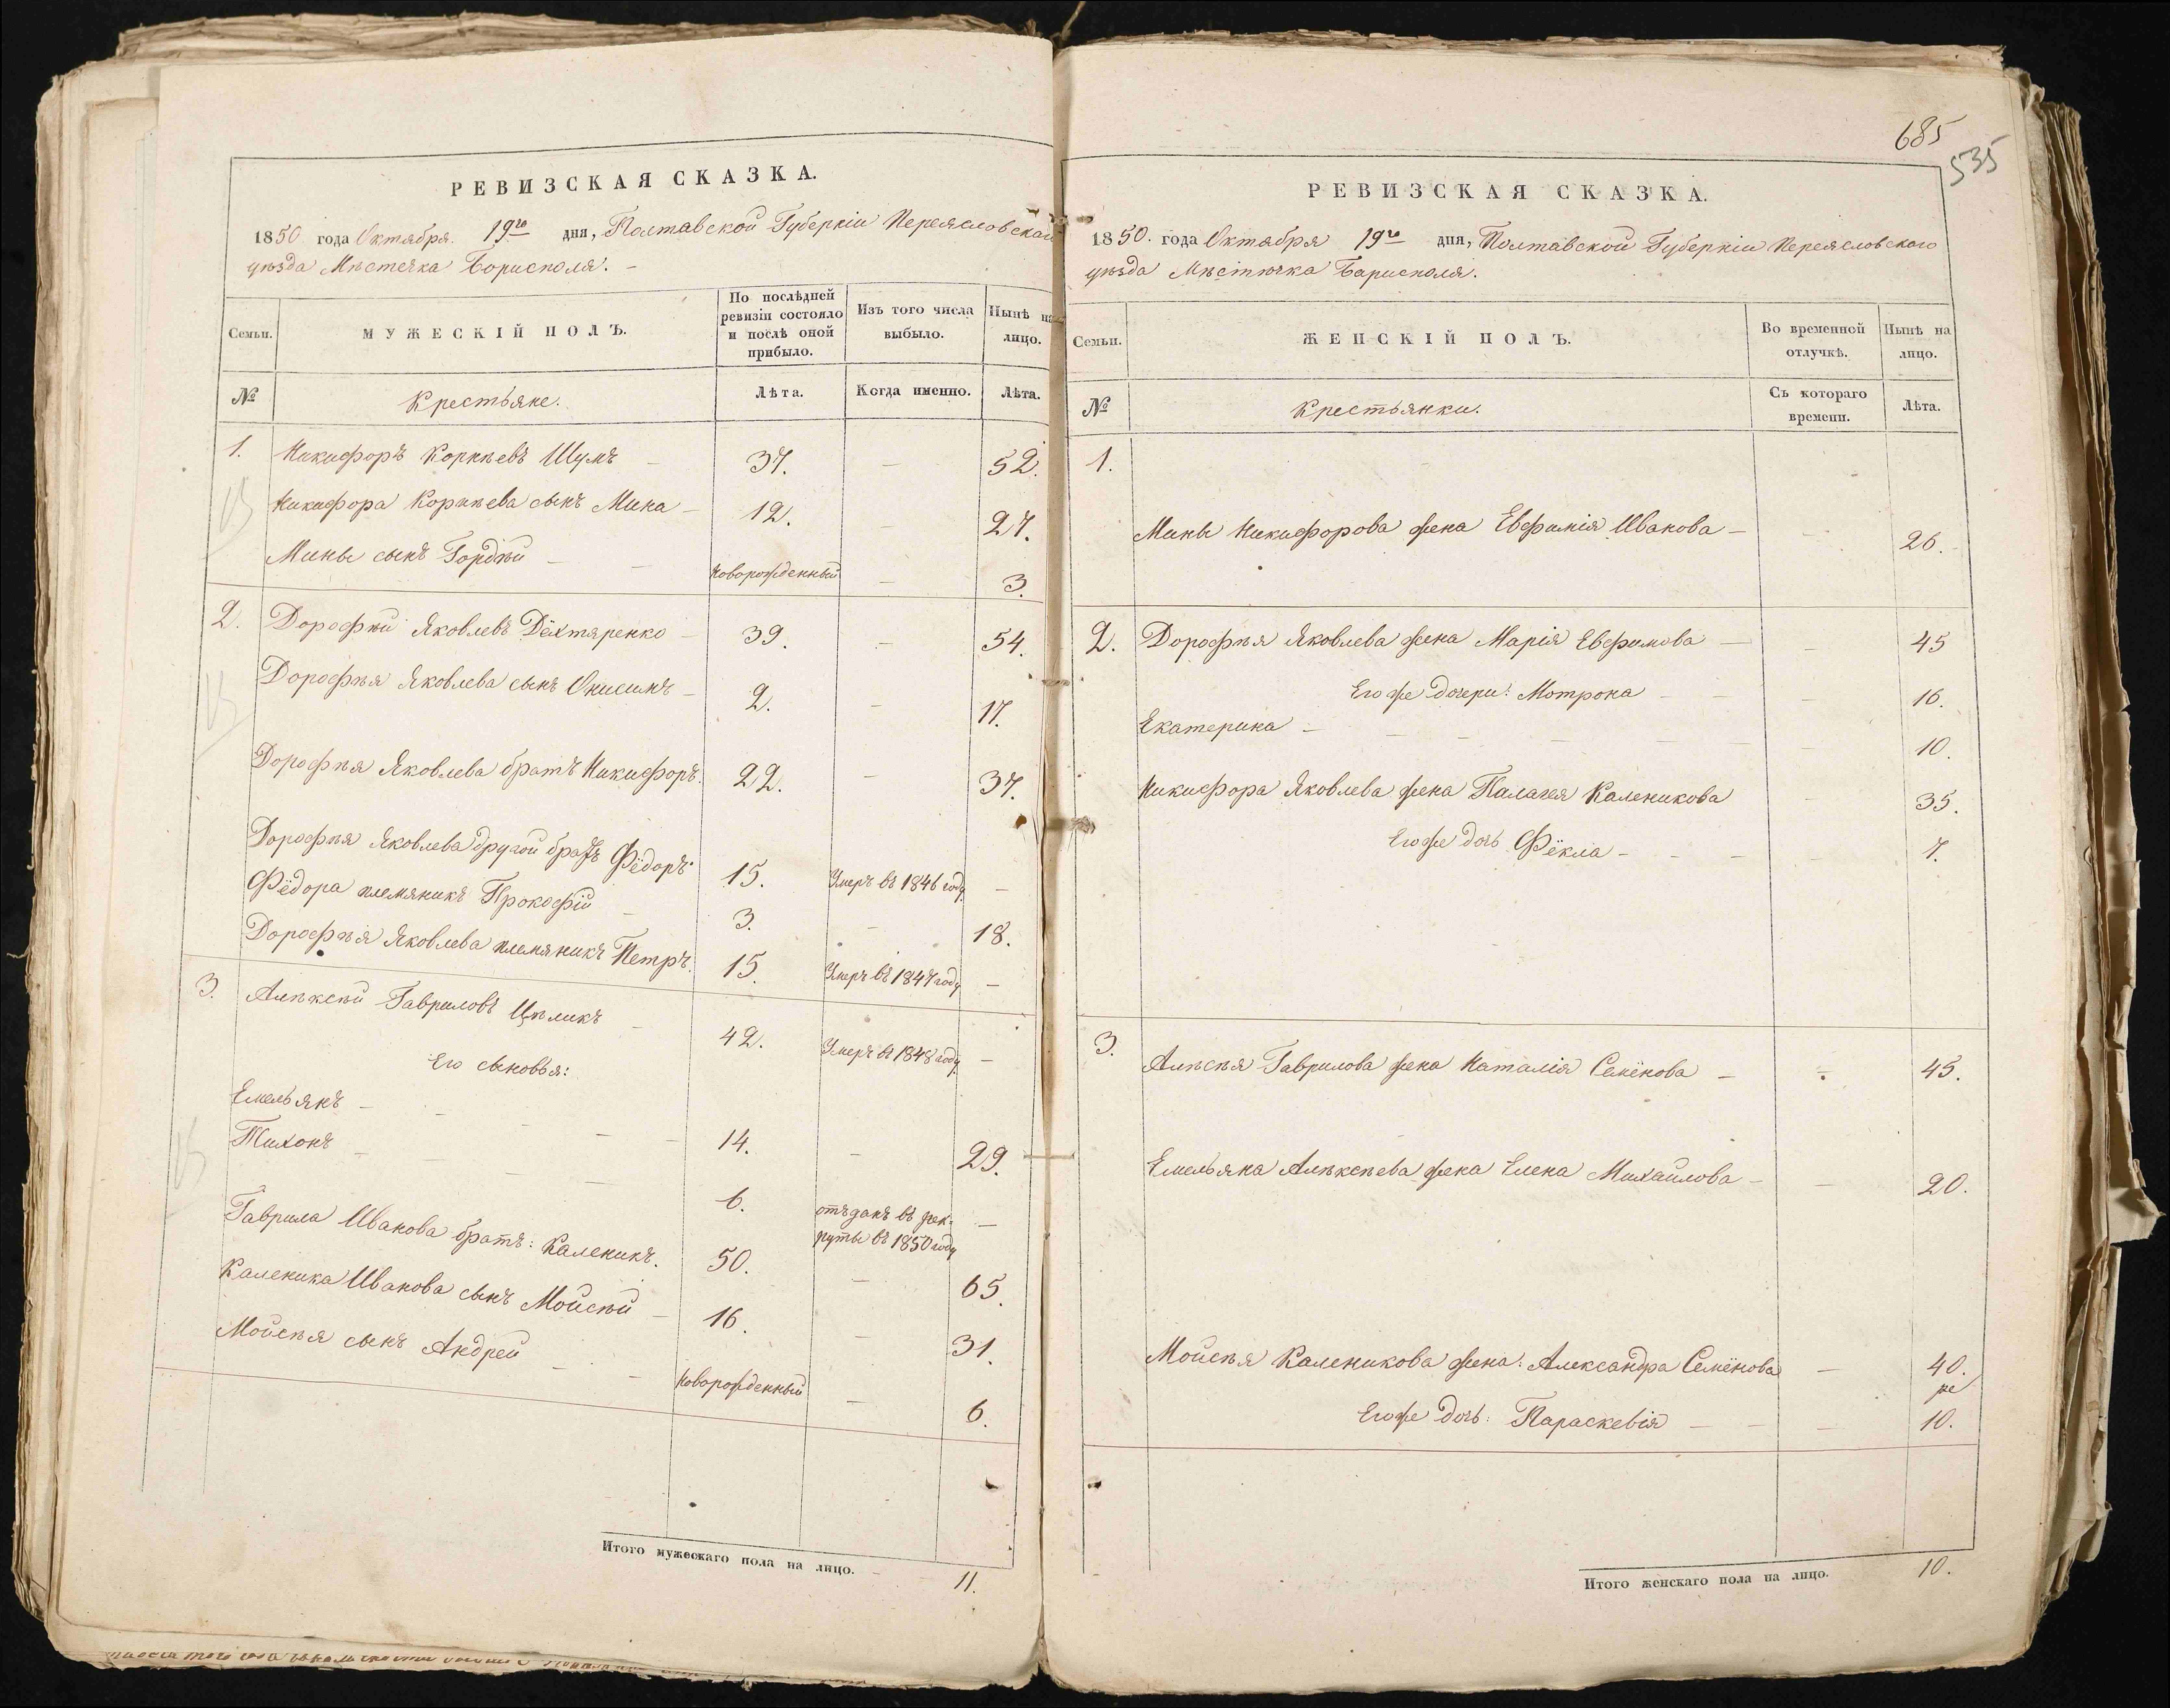 РЕВИЗСКАЯ СКАЗКА.
1850 года Октября. 19го дня, Полтавской Губерніи Переясловскаго
уѣзда Мѣстечка Борисполя. –
Семьи.
МУЖЕСКІЙ ПОЛЪ.
По послѣдней ревизіи состояло и послѣ оной прибыло.
Изъ того числа выбыло.
Нынѣ на лицо.
№
Крестьяне.
Лѣта.
Когда именно.
Лѣта.
1. Никифоръ Корнѣевъ Шумъ – 37. – 52.
Никифора Корнѣева сынъ Мина – 12. – 27.
Мины сынъ Гордѣй – – новорожденный – 3.
2. Дорофѣй Яковлевъ Дёхтяренко – 39. – 54.
Дорофѣя Яковлева сынъ Онисимъ – 2. – 17.
Дорофѣя Яковлева братъ Никифоръ. 22. – 37.
Дорофѣя Яковлева другой братъ Фёдоръ. 15. Умеръ въ 1846 году –
Фёдора племяникъ Прокофій – 3. – 18.
Дорофѣя Яковлева племяникъ Петръ. 15. Умеръ въ 1847 году –
3. Алѣксѣй Гавриловъ Цѣликъ – 42. Умеръ въ 1848 году –
Его сыновья:
Емельянъ – – – – 14. – 29.
Тихонъ – – – – 6. отъданъ въ рек-
руты въ 1850 году –
Гаврила Иванова братъ: Каленикъ. 50. – 65.
Каленика Иванова сынъ Мойсѣй – 16. – 31.
Мойсѣя сынъ Андрей – – новорожденный – 6.
Итого мужескаго пола на лицо. – – 11.
685
535
РЕВИЗСКАЯ СКАЗКА.
1850. года Октября 19го дня, Полтавской Губерніи Переясловскаго
уѣзда Мѣстѣчка Барисполя.
Семьи.
ЖЕНСКІЙ ПОЛЪ.
Во временной отлучкѣ.
Нынѣ на лицо.
№
Крестьянки.
Съ котораго времени.
Лѣта.
1.
Мины Никифорова жена Евфимія Иванова – – 26.
2. Дорофѣя Яковлева жена Марія Евфимова – – 45
Его же дочери: Мотрона – – – 16.
Екатерина – – – – – – – 10.
Никифора Яковлева жена Палагея Каленикова – 35.
Его же дочь Фёкла – – – – 7.
3.
Алѣсѣя Гаврилова жена Наталія Семёнова – – 45.
Емельяна Алѣксѣева жена Елена Михайлова – – 20.
Мойсѣя Каленикова жена: Александра Семёнова – 40.
Его же дочь: Параскевія – – – 10.
Итого женскаго пола на лицо. 10.